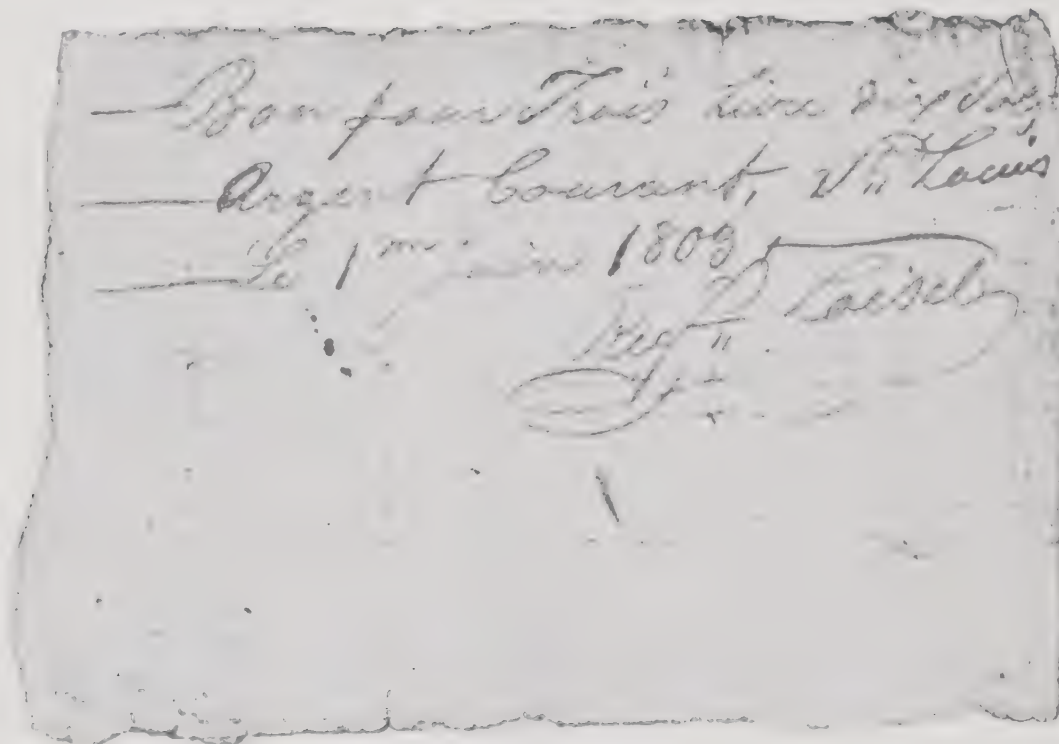 Bon pour Trois Livre dix Sols
Argent Courant, St Louis
Le 1er juin 1803
Regis Loisel